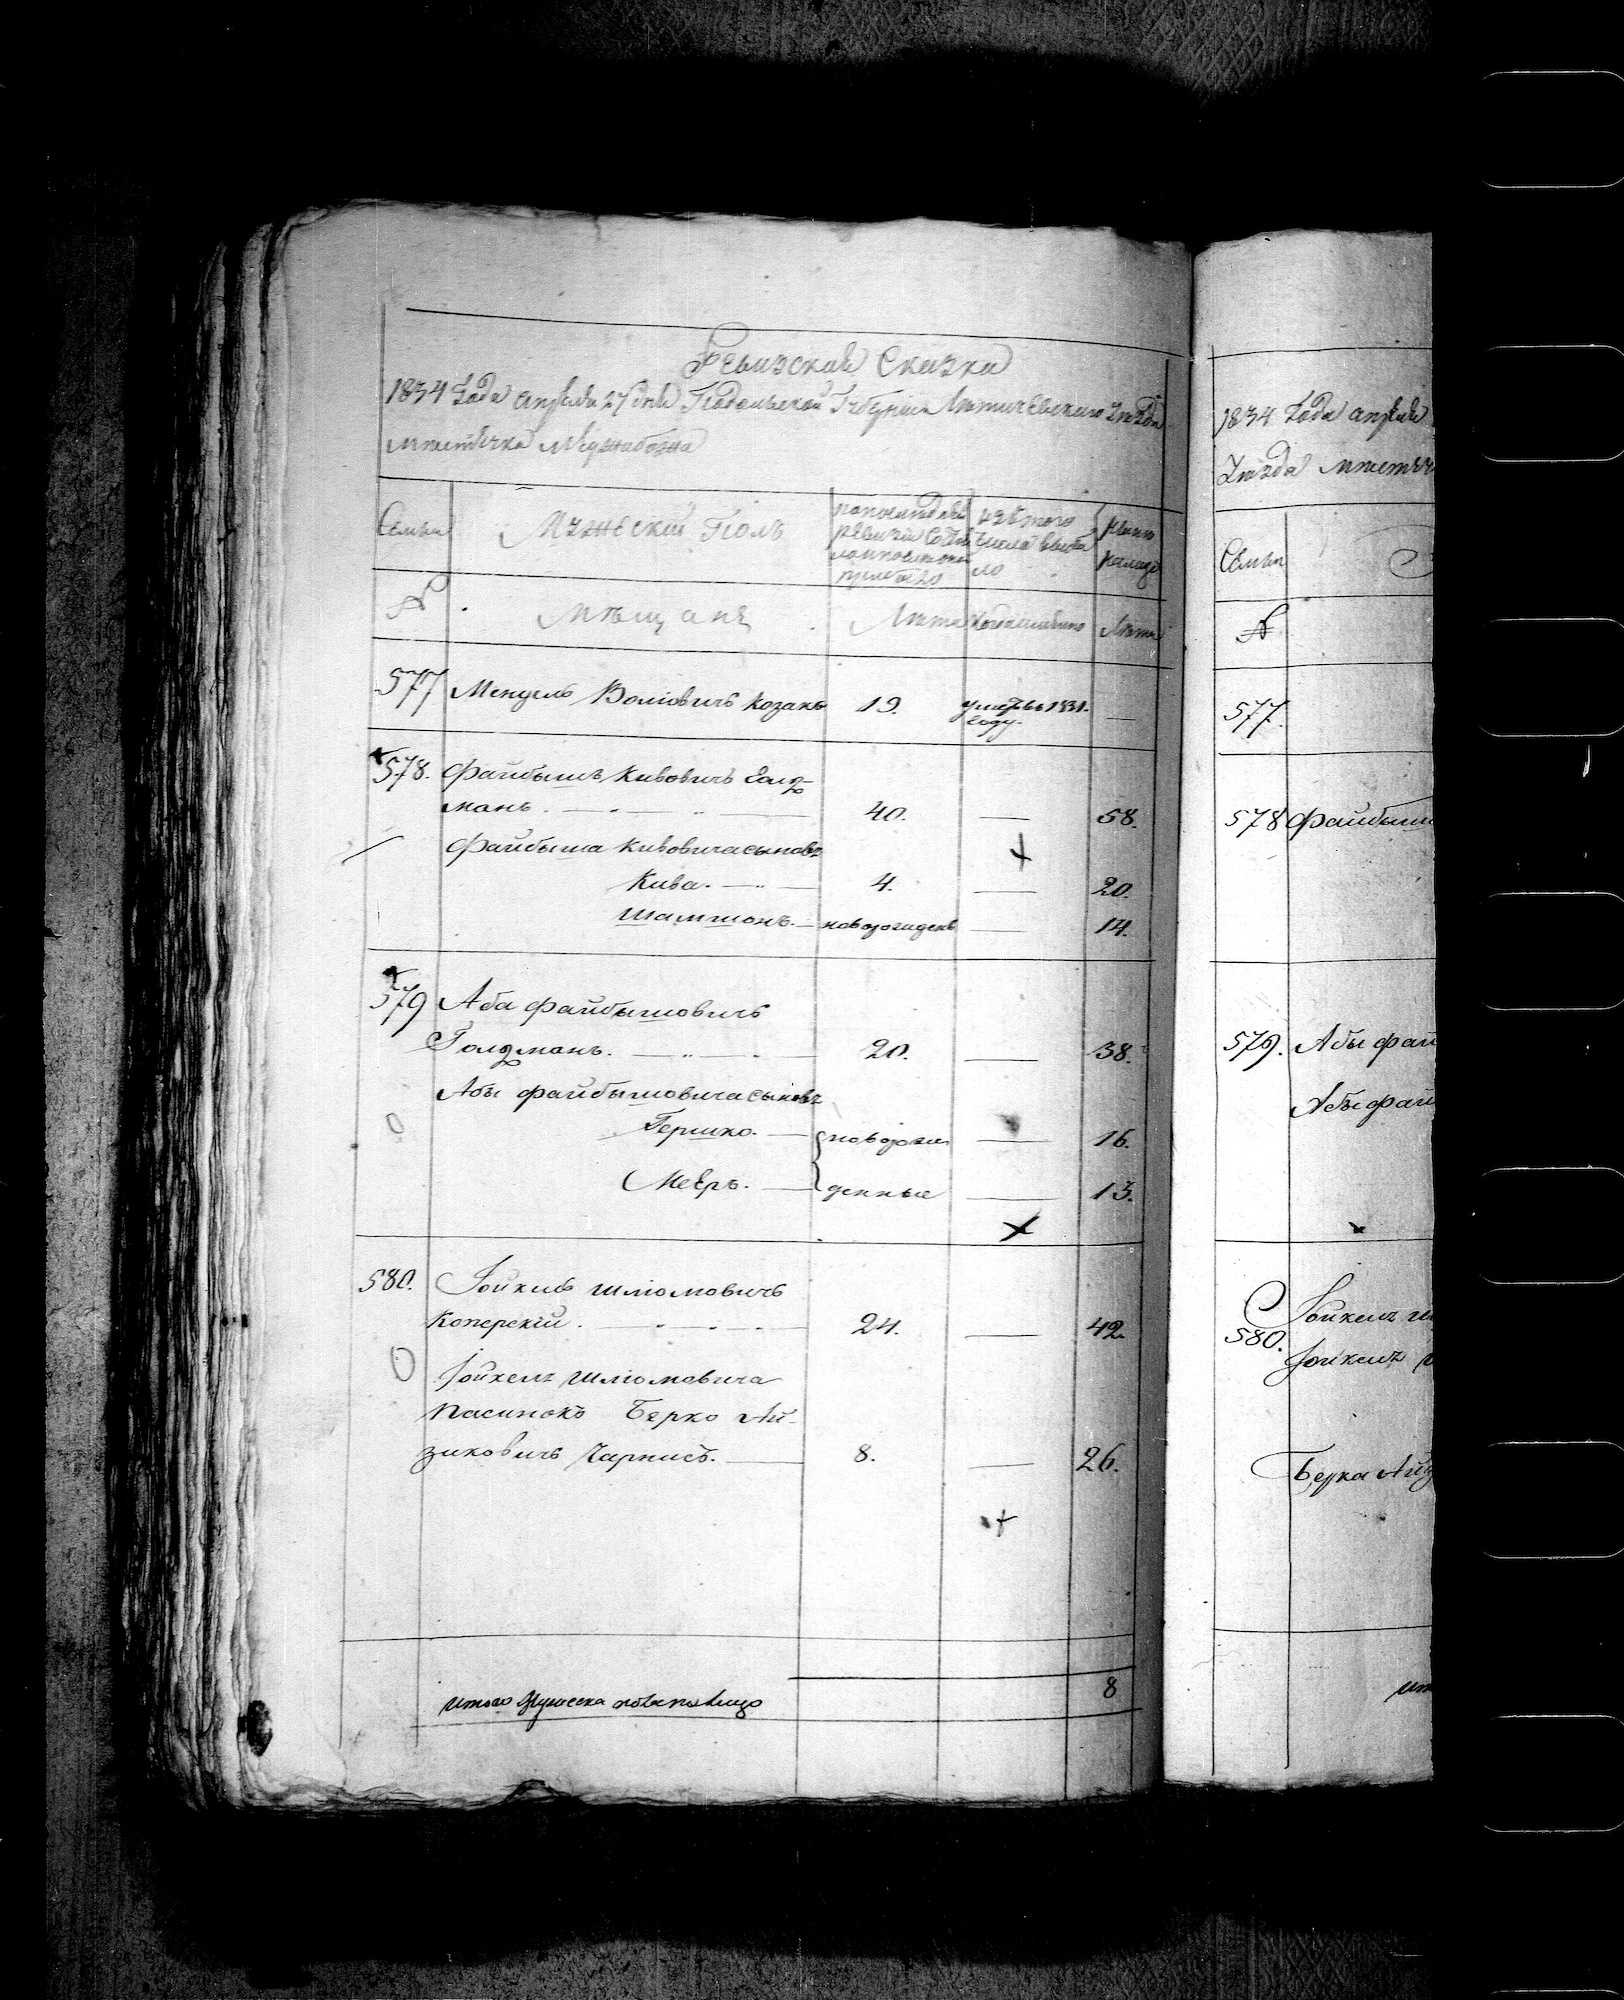 Ревизская Сказка
1834 Года апреля 27 дня Подольской Губернии Летичевского Уезда
местечка Меджибожа
Семьи
Мужеский Полъ
по последней
ревизии состо
изъ того
числа выбы
ло
ныне
налицо
№
мещане
Лета
Когда именно
Лета
577
Мендель Волковичъ Козакъ
19.
умеръ въ 1831.
году.
—
578.
Файбышъ Кивовичъ Голд-
манъ.
40.
—
58.
Файбыша Кивовича сыновъ
Кива.
4.
—
20.
Шамшонъ.
новорожденъ
—
14.
579
Аба Файбышовичъ
Голдманъ.
20.
—
38.
Абы Файбышовича сыновъ
Гершко.
новорож
—
16.
Мееръ.
денные
—
13.
580.
Іойкель Шліомовичъ
Коперскій.
24.
—
42.
Іойкелъ Шліомовича
пасинокъ Берко Ай-
зиковичъ Чарнисъ.
8.
—
26.
итого мужеска пола налицо
8
1834 Года апреля
Уезда местечк
Семьи
№
577.
578
Файбыш
579.
Абы Фай
Абы Фай
580.
Іойкелъ Ш
Іойкелъ
Берка Айз
ит